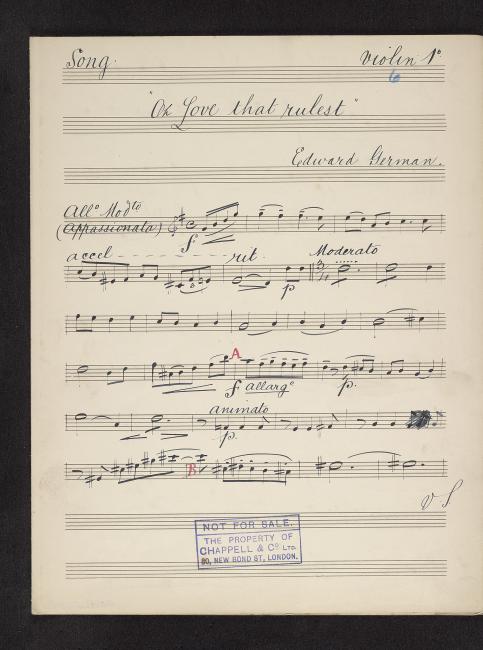 Song.
Violin 1º
6
"Oh Love that rulest"
Edward German.
Allº Modto
(Appassionata)
f
accel - - - - - - rit.
Moderato
3/4
p
A
f allargº
p.
animato
p.
B
V S
NOT FOR SALE.
THE PROPERTY OF
CHAPPELL & Cº LTD.
50, NEW BOND ST, LONDON.